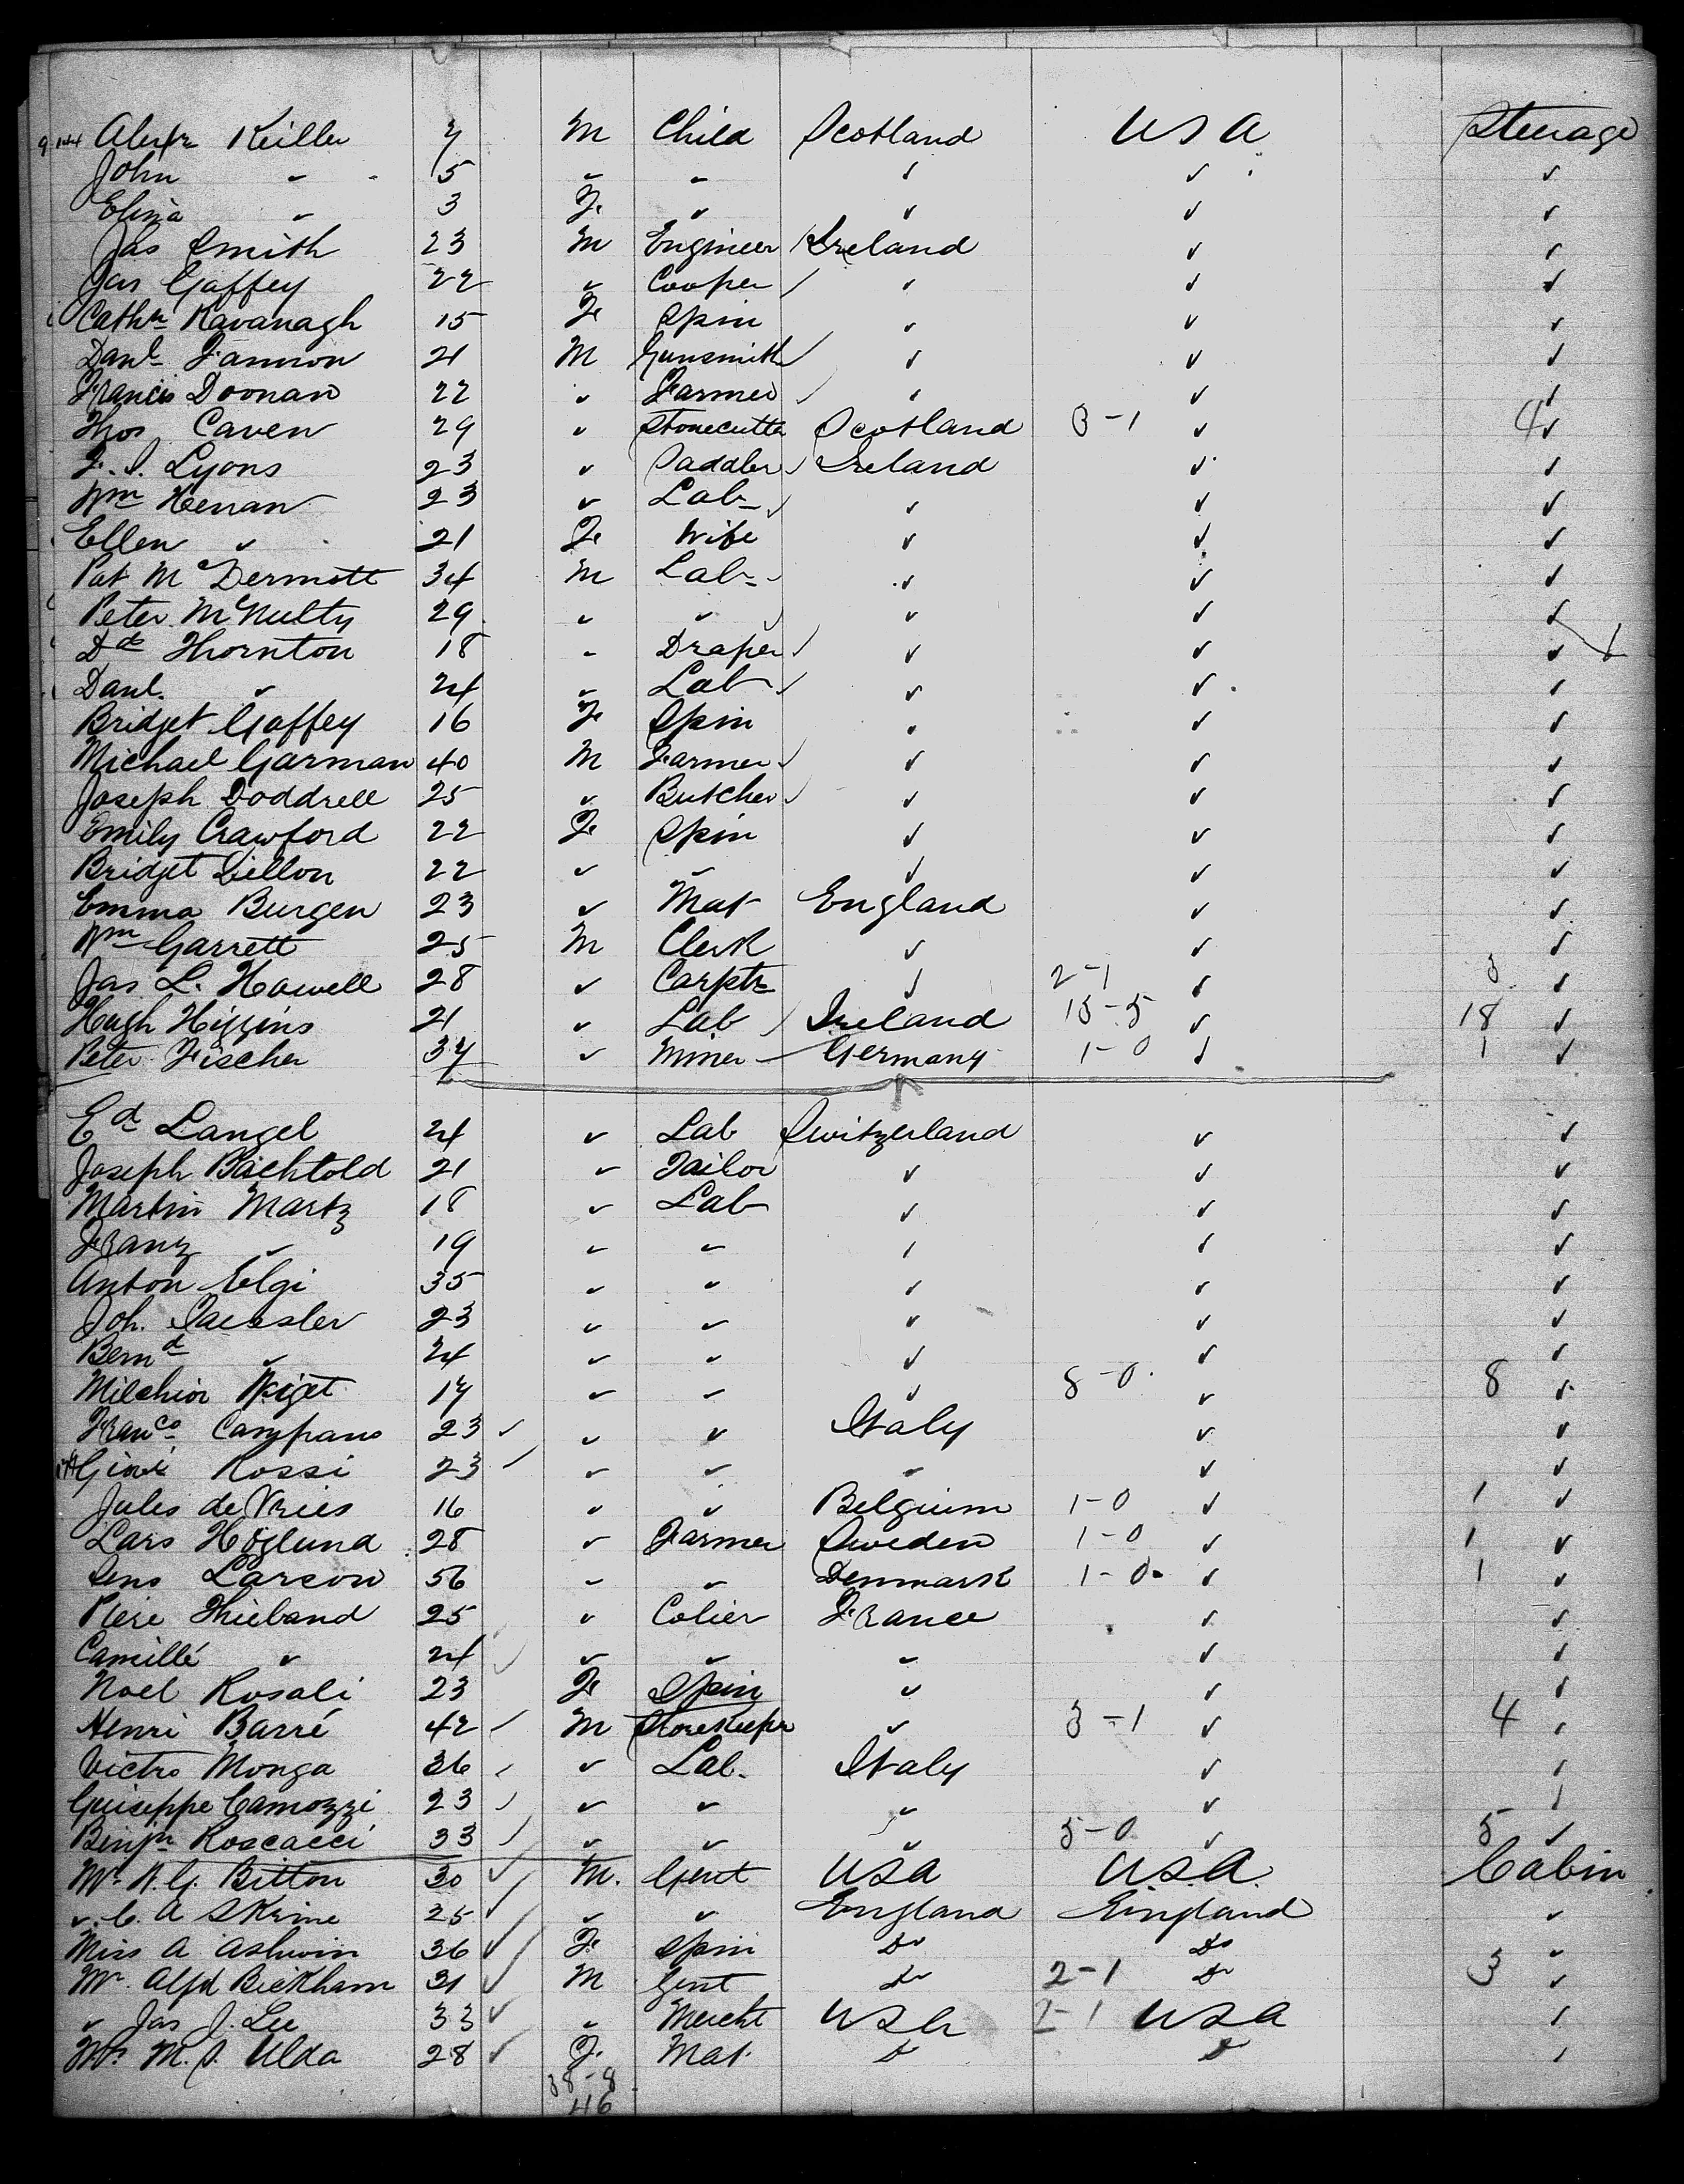 Alexr Keiller 7 M Child Scotland USA Steerage
John " 5 " " " "  "
Elina " 3 Fe " " " "
Jas Smith 23 M Engineer Ireland " "
Jas Gaffey 22 " Cooper " " "
Cathn Kavanagh 15 Fe Spin " " "
Danl Fannon 21 M Gunsmith " " "
Francis Doonan 22 " Farmer " " "
Thos Caven 29 " Stonecutter Scotland 3-1 " 4 "
F. S. Lyons 23 " Saddler Ireland " "
Wm Heenan 23 " Lab " " "
Ellen " 21 Fe Wife " " "
Pat McDermott 34 M Lab " " "
Peter McNulty 29 " " " " "
Dd Thornton 18 " Draper " " "
Danl. " 24 " Lab " " "
Bridget Gaffey 16 Fe Spin " " "
Michael Garman 40 M Farmer " " "
Joseph Doddrell 25 " Butcher " " "
Emily Crawford 22 Fe Spin " " "
Bridget Dillon 22 " " " " "
Emma Burgen 23 " Mat England " "
Wm Garrett 25 M Clerk " " "
Jas L. Howell 28 " Carptr " 2-1 " 3 "
Hugh Higgins 21 " Lab Ireland 13-5 " 18 "
Peter Fischer 37 " Miner Germany 1-0 " 1 "
Ed Langel 24 " Lab Switzerland " "
Joseph Bächtold 21 " Tailor " " "
Martin Martz 18 " Lab " " "
Franz " 19 " " " " "
Anton Elgi 35 " " " " "
Joh. Saessler 23 " " " " "
Bernd " 24 " " " " "
Milchior Wiget 17 " " " 8-0 " 8 "
Franco Campano 23 " " Italy " "
Giovi Rossi 23 " " " " "
Jules de Vries 16 " " Belgium 1-0 " 1 "
Lars Höglund 28 " Farmer Sweden 1-0 " 1 "
Jens Larson 56 " " Denmark 1-0 " 1 "
Piere Thieband 25 " Colier France " "
Camillé " 24 " " " " "
Noel Rosali 23 Fe Spin " " "
Henri Barré 42 M Storekeeper " 3-1 " 4 "
Victro Monga 36 " Lab. Italy " "
Guiseppe Camozzi 23 " " " " "
Benjn Roscacci 33 " " " 5-0 " 5 "
Mr W. G. Bitton 30 M. Gent USA USA Cabin
" C. A Skrine 25 " " England England "
Miss A Ashwin 36 Fe Spin Do Do "
Mr. Alfd Bickham 31 M Gent Do 2-1 Do 3 "
" Jas J. Lee 33 " Mercht USA 2-1 USA "
Mrs M. S. Ulda 28 F. Mat. Do Do "
38-8
46